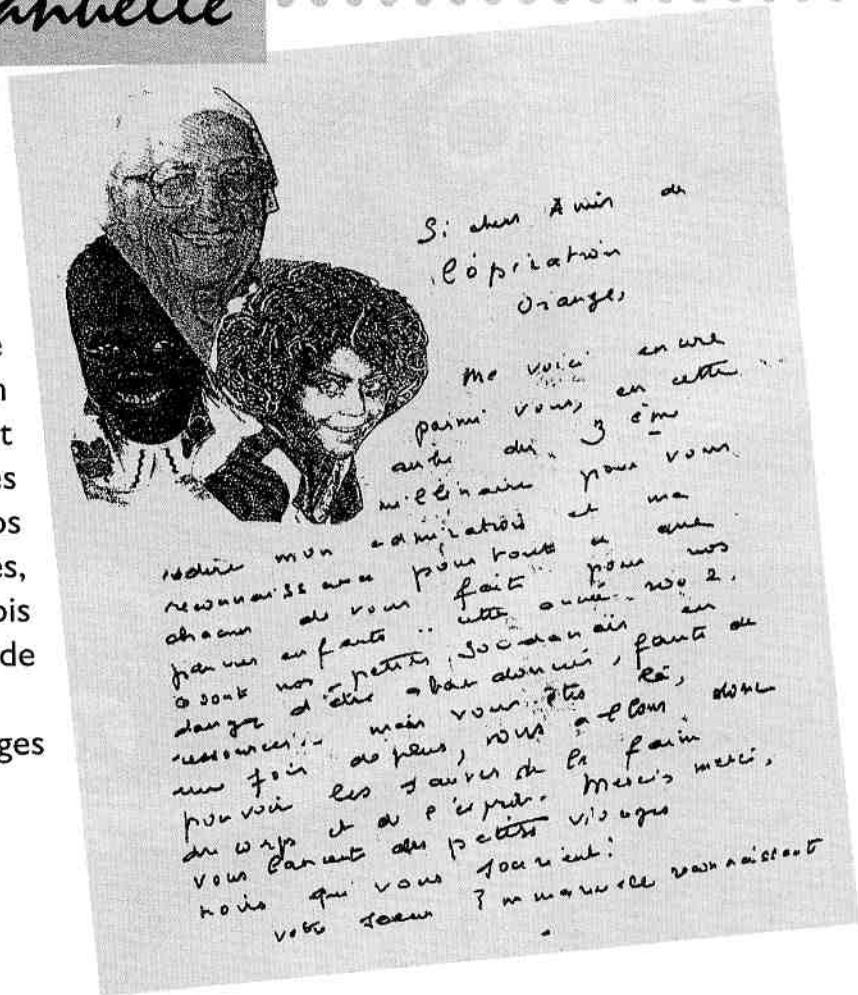 anuelle
e
n
t
es
os
es,
ois
de
ges
Si chers Amis de
l'opération
Orange,
Me voici encore
parmi vous, en cette
aube du 3 ème
millénaire pour vous
redire mon admiration et ma
reconnaissance pour tout ce que
chacun de vous fait pour nos
pauvres enfants.. cette année 2002.
ce sont nos petits Soudanais en
danger d'être abandonnés, faute de
ressources.. mais vous êtes là,
une fois de plus, nous allons donc
pouvoir les sauver de la faim
du corps et de l'esprit. Merci, merci,
vous lancent des petits visages
noirs qui vous sourient!
votre soeur Emmanuelle reconnaissante